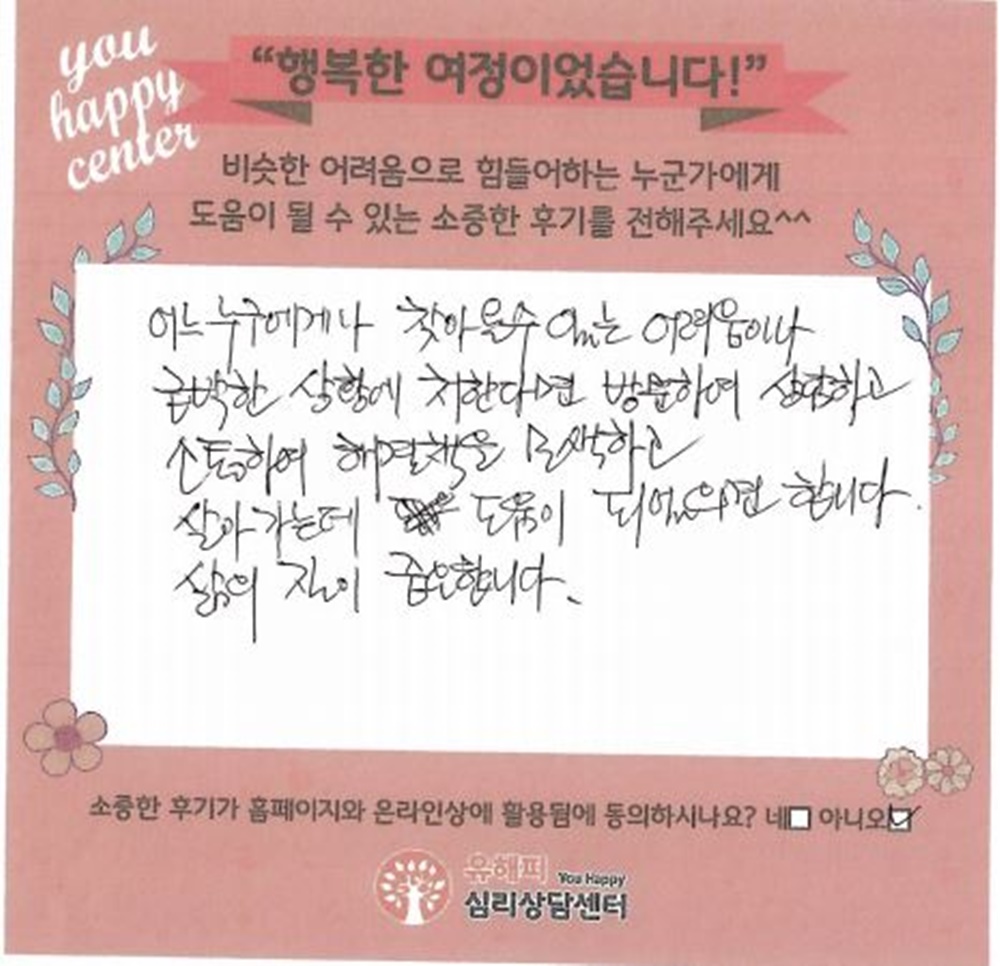 you
happy
center
“행복한 여정이었습니다!”
비슷한 어려움으로 힘들어하는 누군가에게
도움이 될 수 있는 소중한 후기를 전해주세요^^
어느 누구에게나 찾아올수 있는 어려움이나
급박한 상황에 처한다면 방문하여 상담하고
소통하여 해결책을 모색하고
살아가는데 도움이 되었으면 합니다.
삶의 질이 중요합니다.
소중한 후기가 홈페이지와 온라인상에 활용됨에 동의하시나요? 네 아니오
유해피 You Happy
심리상담센터